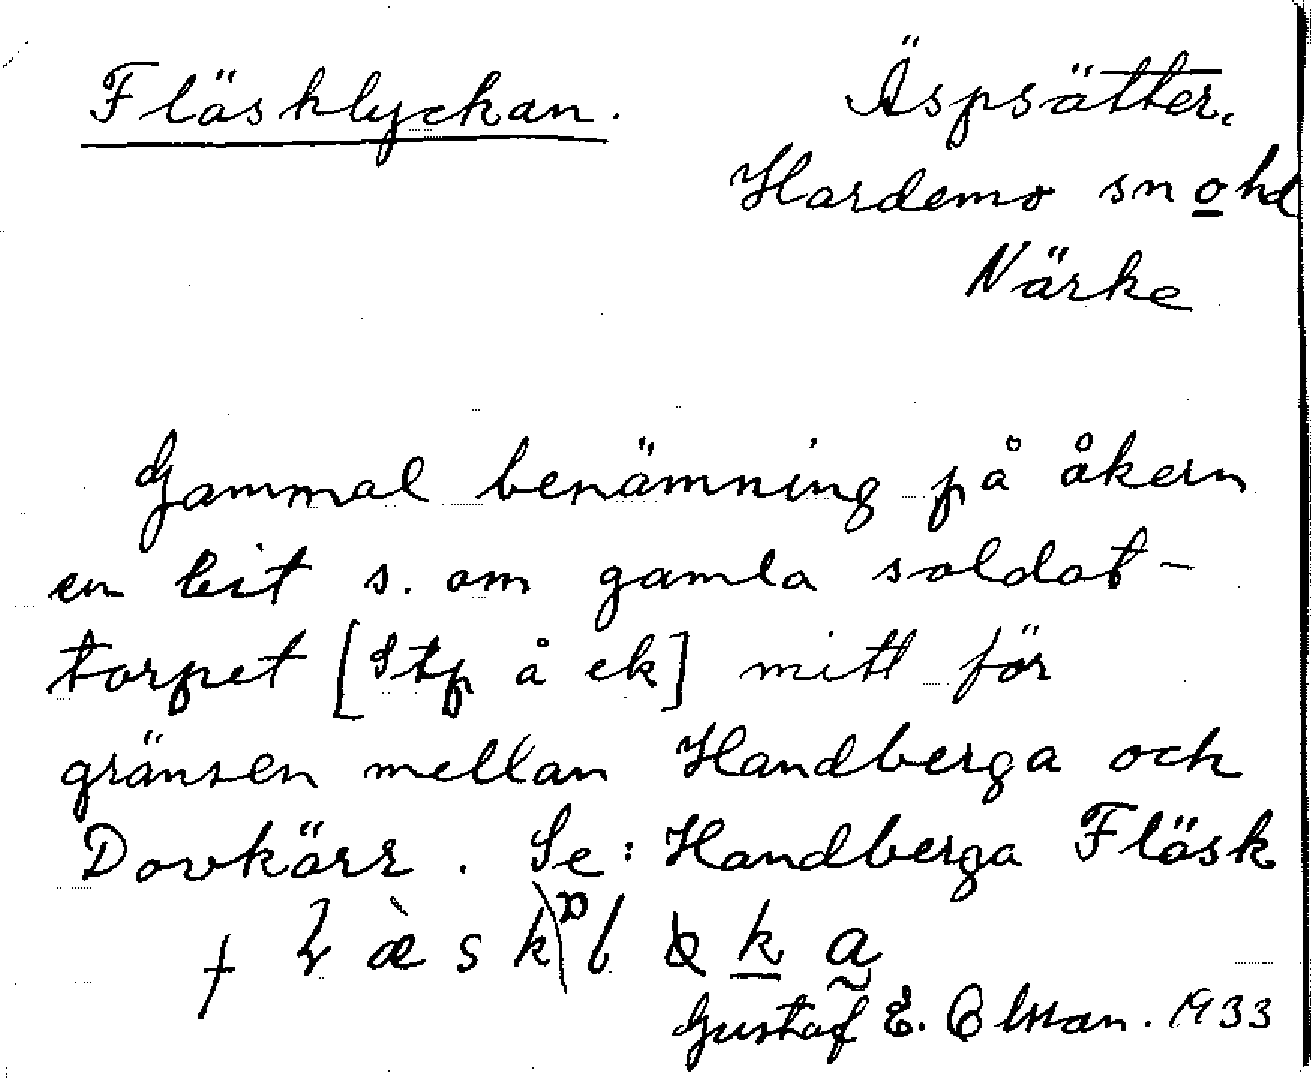 Fläsklyckan.
Äspsätter.
Hardemo sn o hd
Närke
Gammal benämning på åkern
en bit s. om gamla soldat-
torpet [Stp å ek] mitt för
gränsen mellan Handberga och
Dovkärr. Se: Handberga Fläsk
Gustaf E. Olsson. 1933